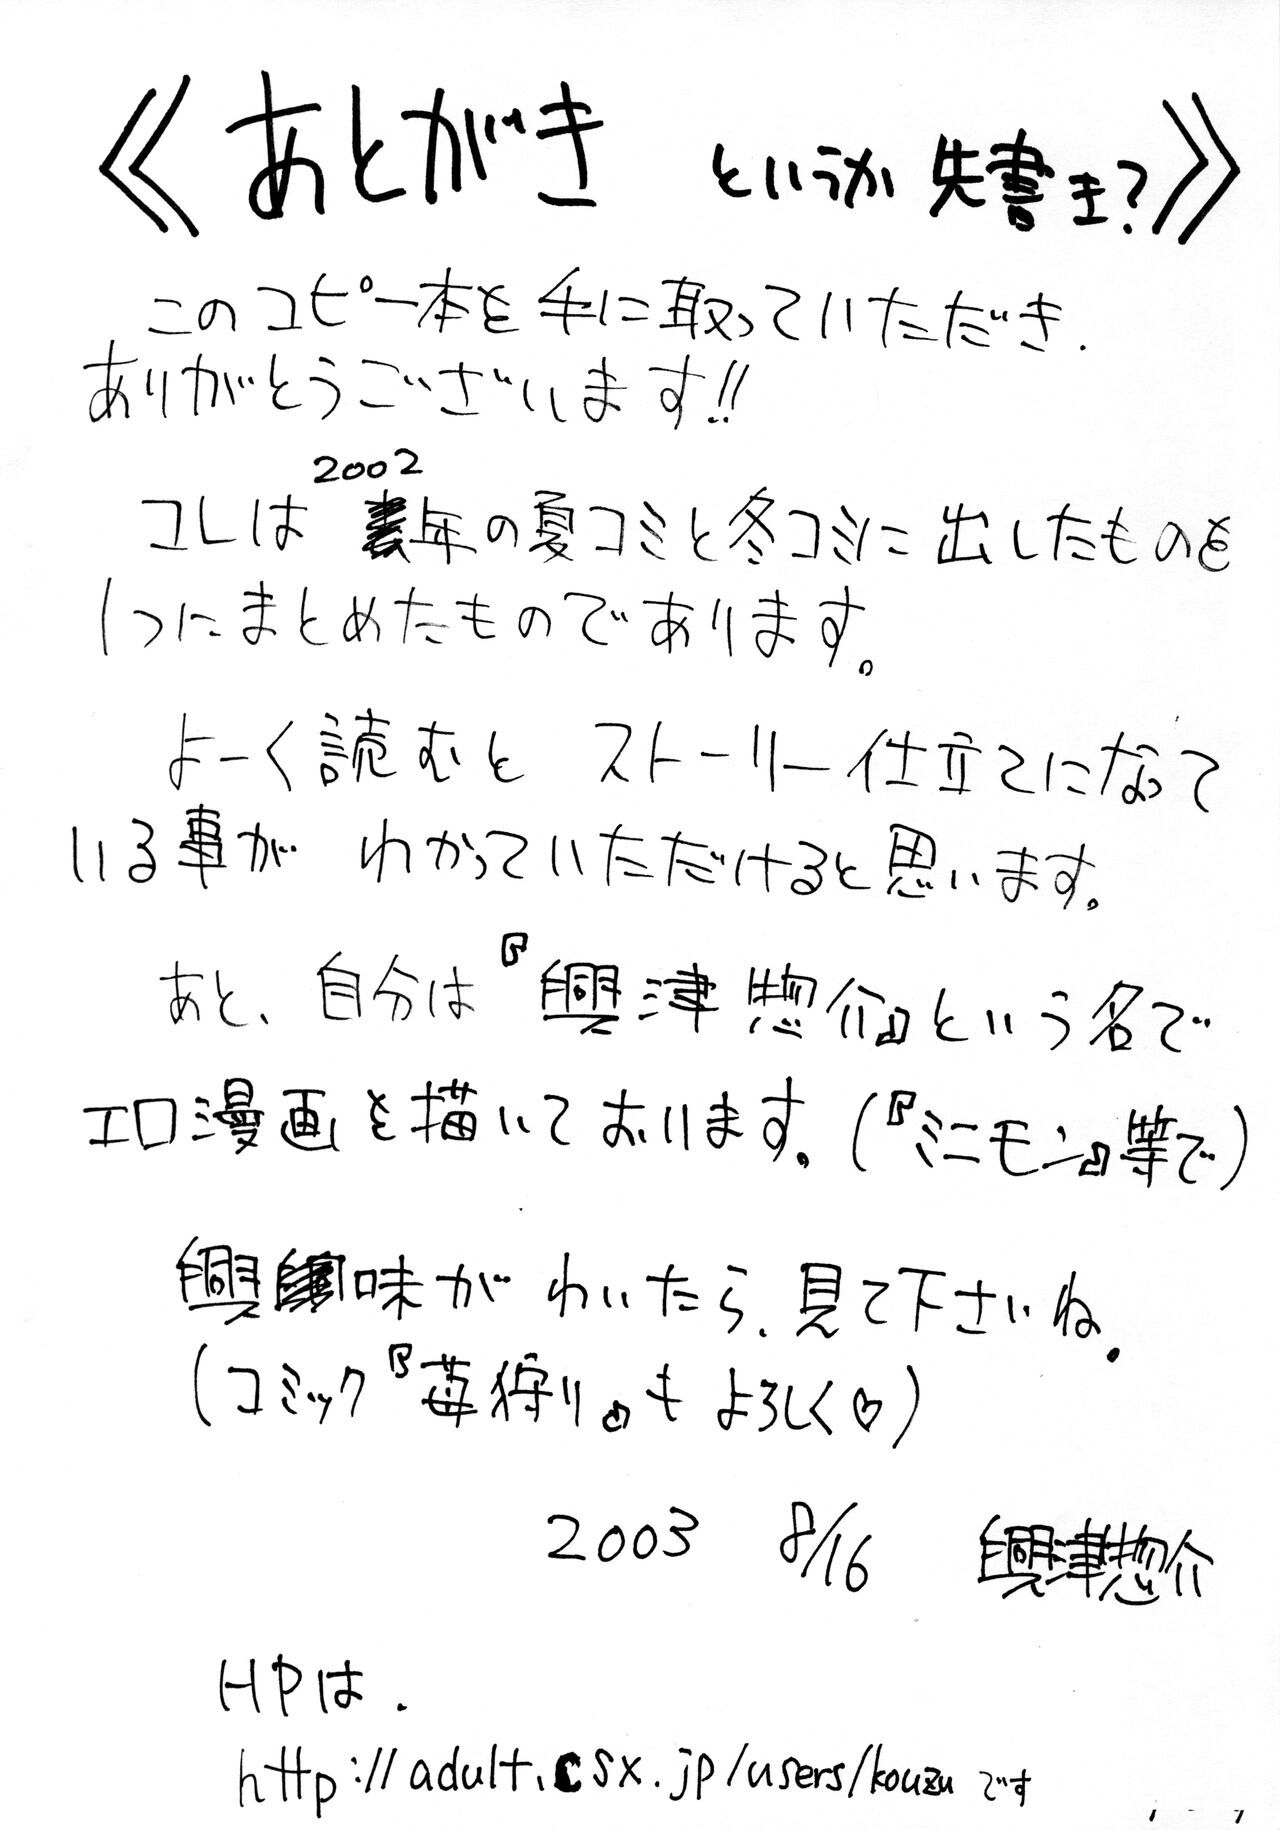 《あとがき というか 先書き?》
このコピー本を手に取っていただき、
ありがとうございます!!
2002
コレは 年の夏コミと冬コミに出したものを
1つにまとめたものであります。
よーく読むと ストーリー仕立てになって
いる事が わかっていただけると思います。
あと、自分は『興津惣介』という名で
エロ漫画を描いております。(『ミニモン』等で)
興味がわいたら、見て下さいね。
(コミック『苺狩り』もよろしく♡)
2003 8/16 興津惣介
HPは、
http://adult.csx.jp/users/kouzu です